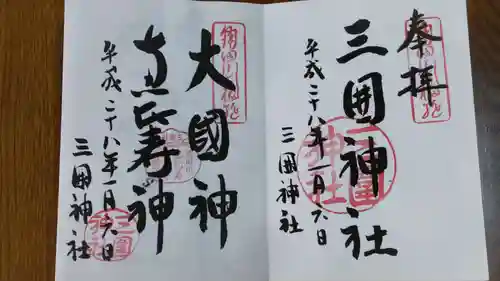 奉拝
三囲神社
平成二十八年一月六日
三囲神社
大國神
恵比寿神
平成二十八年一月六日
三囲神社